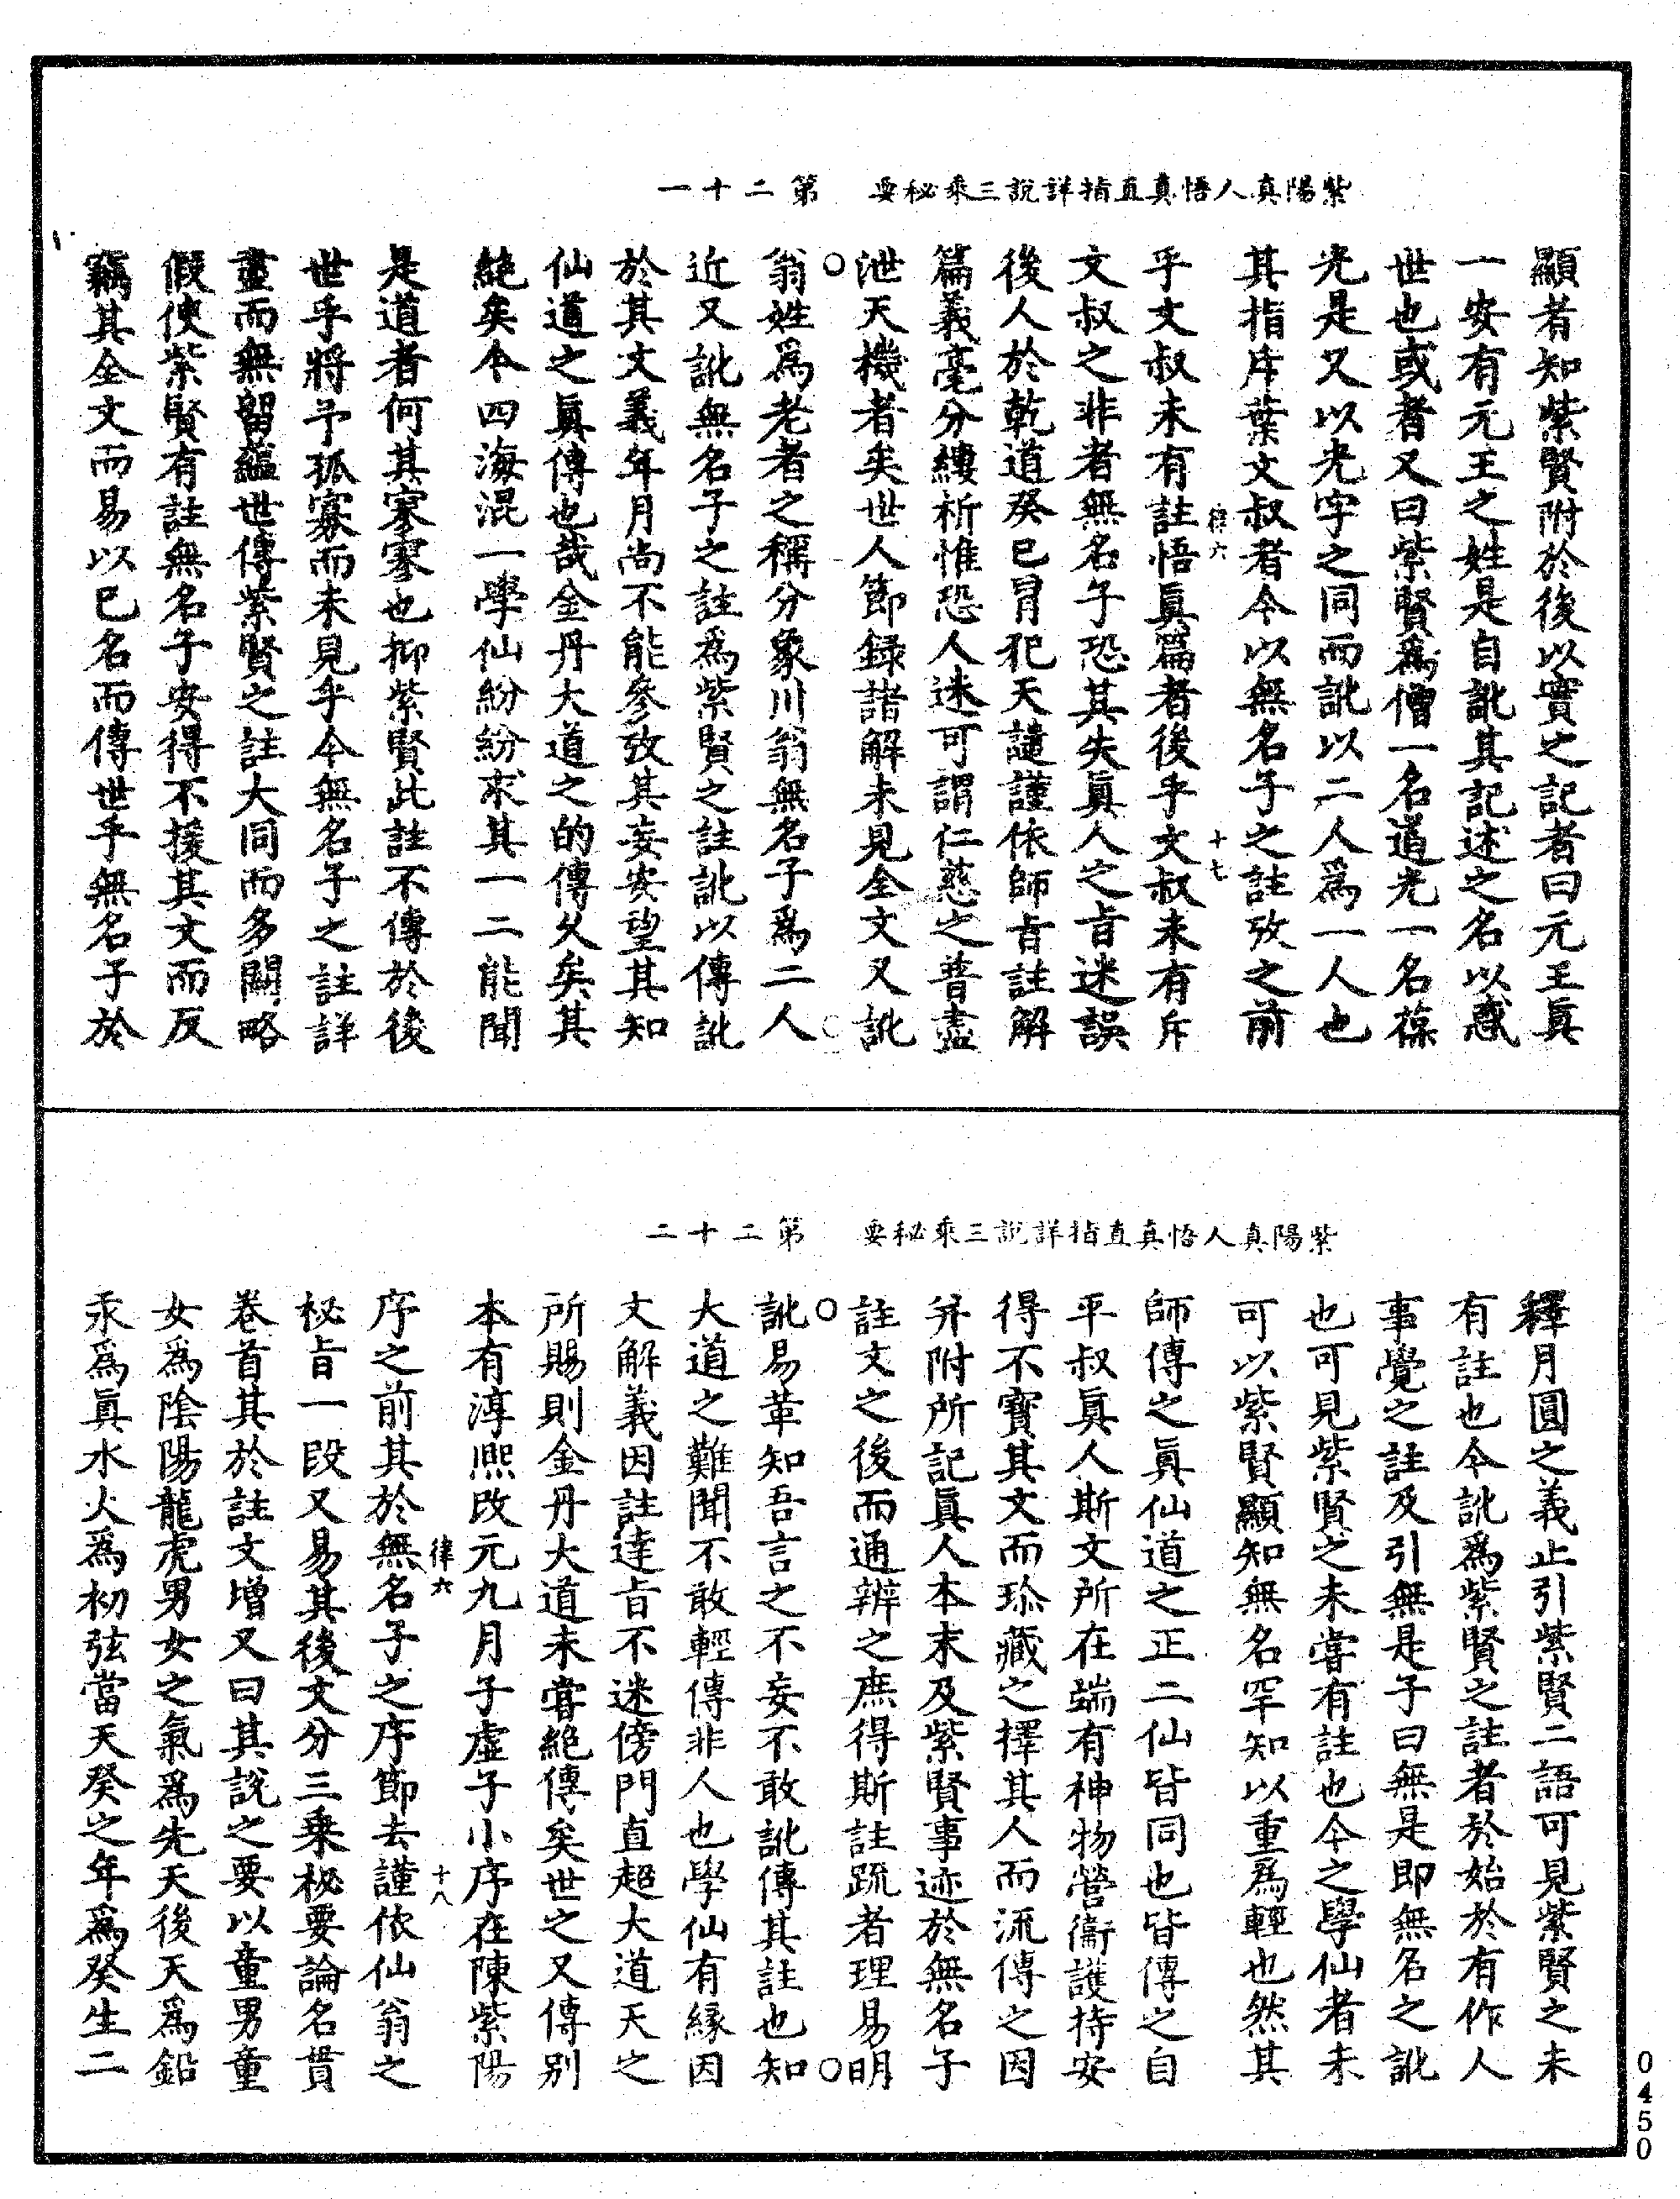 紫陽真人悟真直指詳說三乘秘要　第二十一
顯者知紫賢附於後以實之記者曰元王眞
一安有元王之姓是自訛其記述之名以惑
世也或者又曰紫賢爲僧一名道光一名葆
光是又以光字之同而訛以二人爲一人也
其指斥葉文叔者今以無名子之註攷之前
律六　十七
乎文叔未有註悟眞篇者後乎文叔未有斥
文叔之非者無名子恐其失眞人之旨迷誤
後人於乾道癸巳冐犯天譴謹依師旨註解
篇義毫分縷析惟恐人迷可謂仁慈之普盡
泄天機者矣世人節録諸解未見全文又訛
翁姓爲老者之稱分象川翁無名子爲二人
近又訛無名子之註爲紫賢之註訛以傳訛
於其文義年月尚不能參攷其妄安望其知
仙道之眞傳也哉金丹大道之的傳久矣其
絶矣今四海混一學仙紛紛求其一二能聞
是道者何其寥寥也抑紫賢此註不傳於後
世乎將予孤寡而未見乎今無名子之註詳
盡而無留蘊世傳紫賢之註大同而多闕略
假使紫賢有註無名子安得不援其文而反
竊其全文而易以已名而傳世乎無名子於
紫陽真人悟真直指詳說三乘秘要　第二十二
釋月圓之義止引紫賢二語可見紫賢之未
有註也今訛爲紫賢之註者於始於有作人
事覺之註及引無是子曰無是即無名之訛
也可見紫賢之未嘗有註也今之學仙者未
可以紫賢顯知無名罕知以重爲輕也然其
師傳之眞仙道之正二仙皆同也皆傳之自
平叔眞人斯文所在端有神物營衞護持安
得不寳其文而珎藏之擇其人而流傳之因
并附所記眞人本末及紫賢事迹於無名子
註文之後而通辨之庶得斯註䟽者理易明
訛易革知吾言之不妄不敢訛傳其註也知
大道之難聞不敢輕傳非人也學仙有緣因
文解義因註達旨不迷傍門直超大道天之
所賜則金丹大道未嘗絶傳矣世之又傳别
本有淳熙改元九月子虛子小序在陳紫陽
律六　十八
序之前其於無名子之序節去謹依仙翁之
秘旨一段又易其後文分三乘秘要論名貫
卷首其於註文增又曰其說之要以童男童
女爲陰陽龍虎男女之氣爲先天後天爲鉛
汞爲眞水火爲初弦當天癸之年爲癸生二
0450